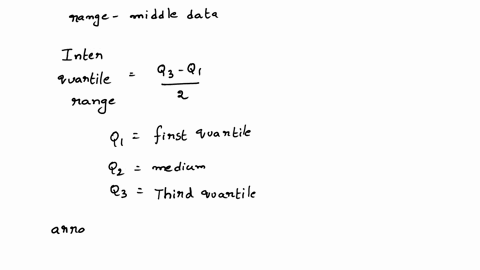 range - middle data
Inter quartile range = Q3 - Q1 / 2
Q1 = first quartile
Q2 = medium
Q3 = Third quartile
arro